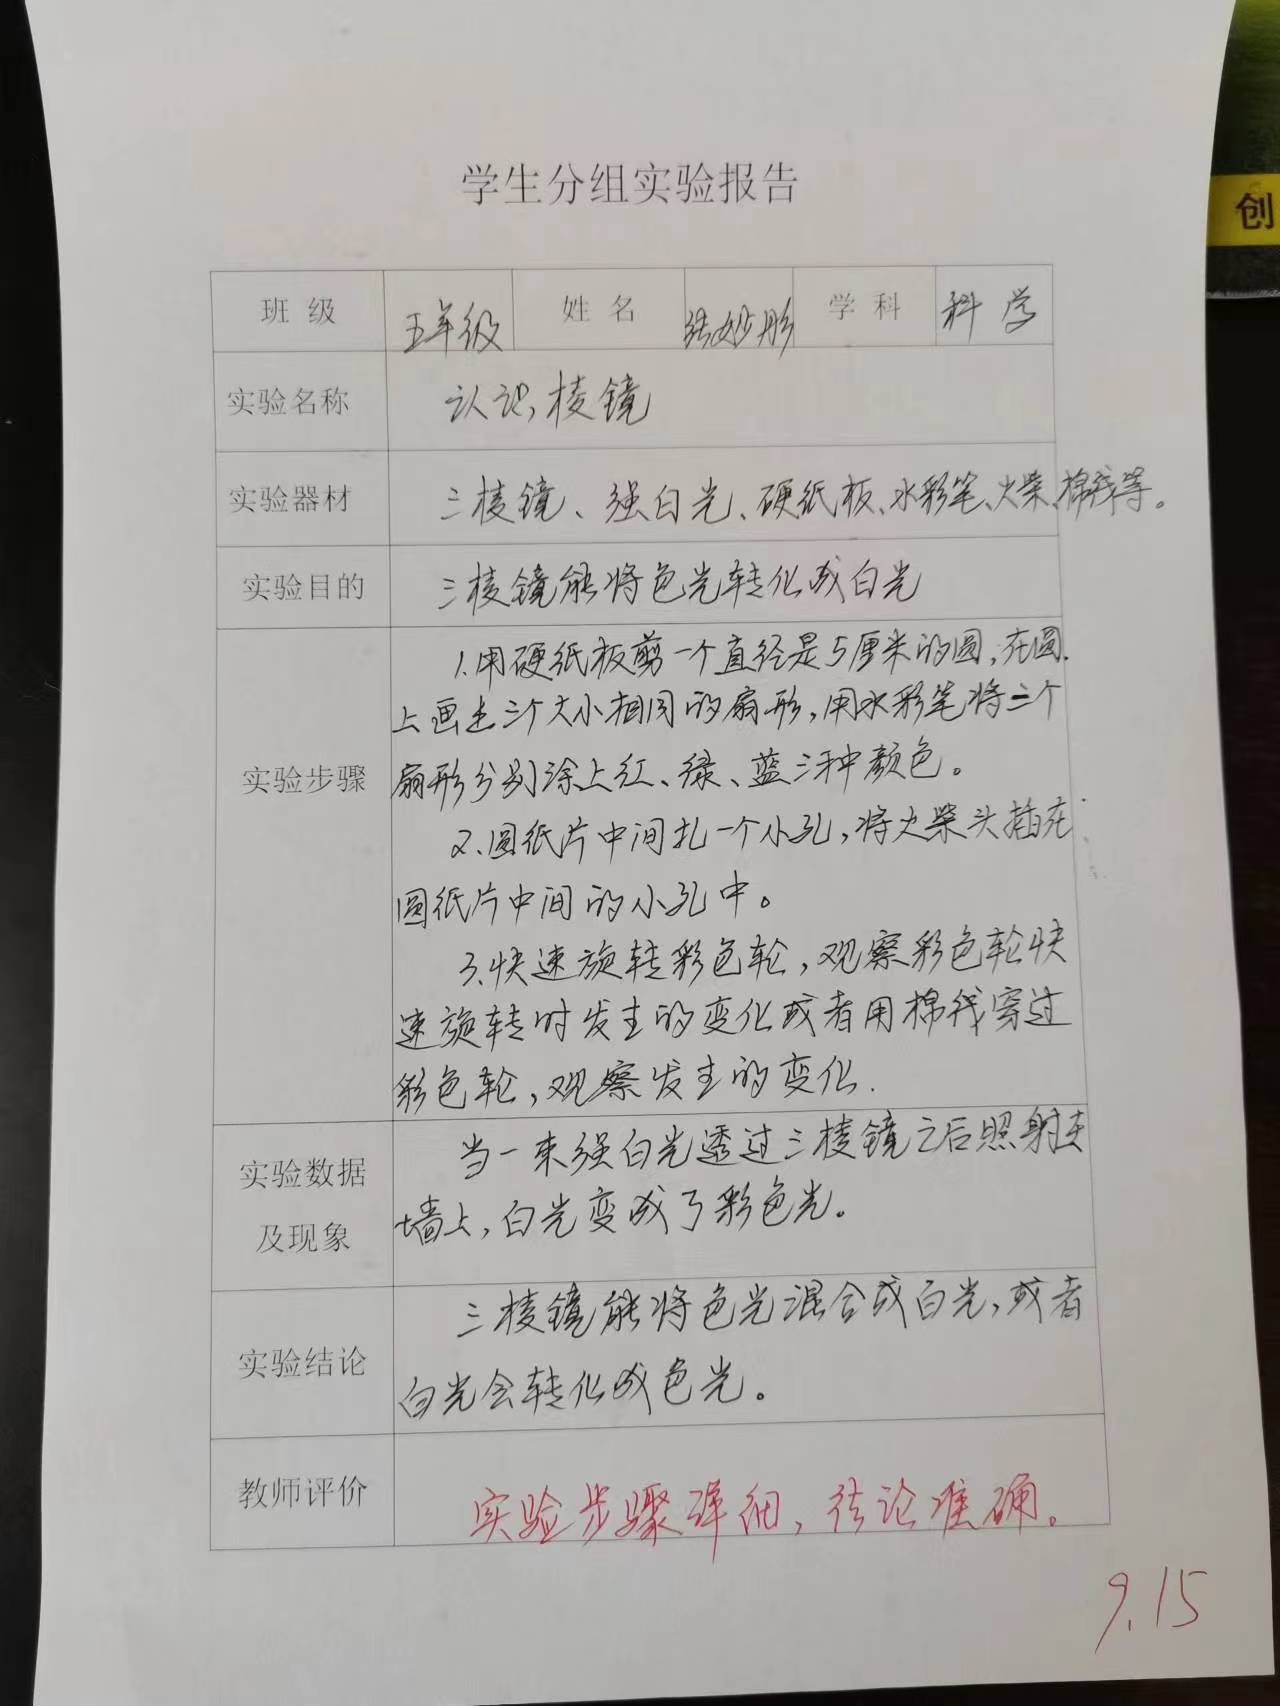 创
学生分组实验报告
班 级 五年级 姓 名 张妙彤 学 科 科学
实验名称 认识棱镜
实验器材 三棱镜、强白光、硬纸板、水彩笔、火柴、棉线等。
实验目的 三棱镜能将色光转化成白光
实验步骤
1.用硬纸板剪一个直径是5厘米的圆,在圆
上画出三个大小相同的扇形,用水彩笔将三个
扇形分别涂上红、绿、蓝三种颜色。
2.圆纸片中间扎一个小孔,将火柴头插在
圆纸片中间的小孔中。
3.快速旋转彩色轮,观察彩色轮快
速旋转时发生的变化或者用棉线穿过
彩色轮,观察发生的变化.
实验数据
及现象
当一束强白光透过三棱镜之后照射到
墙上,白光变成了彩色光。
实验结论
三棱镜能将色光混合成白光,或者
白光会转化成色光。
教师评价 实验步骤详细,结论准确。
9.15